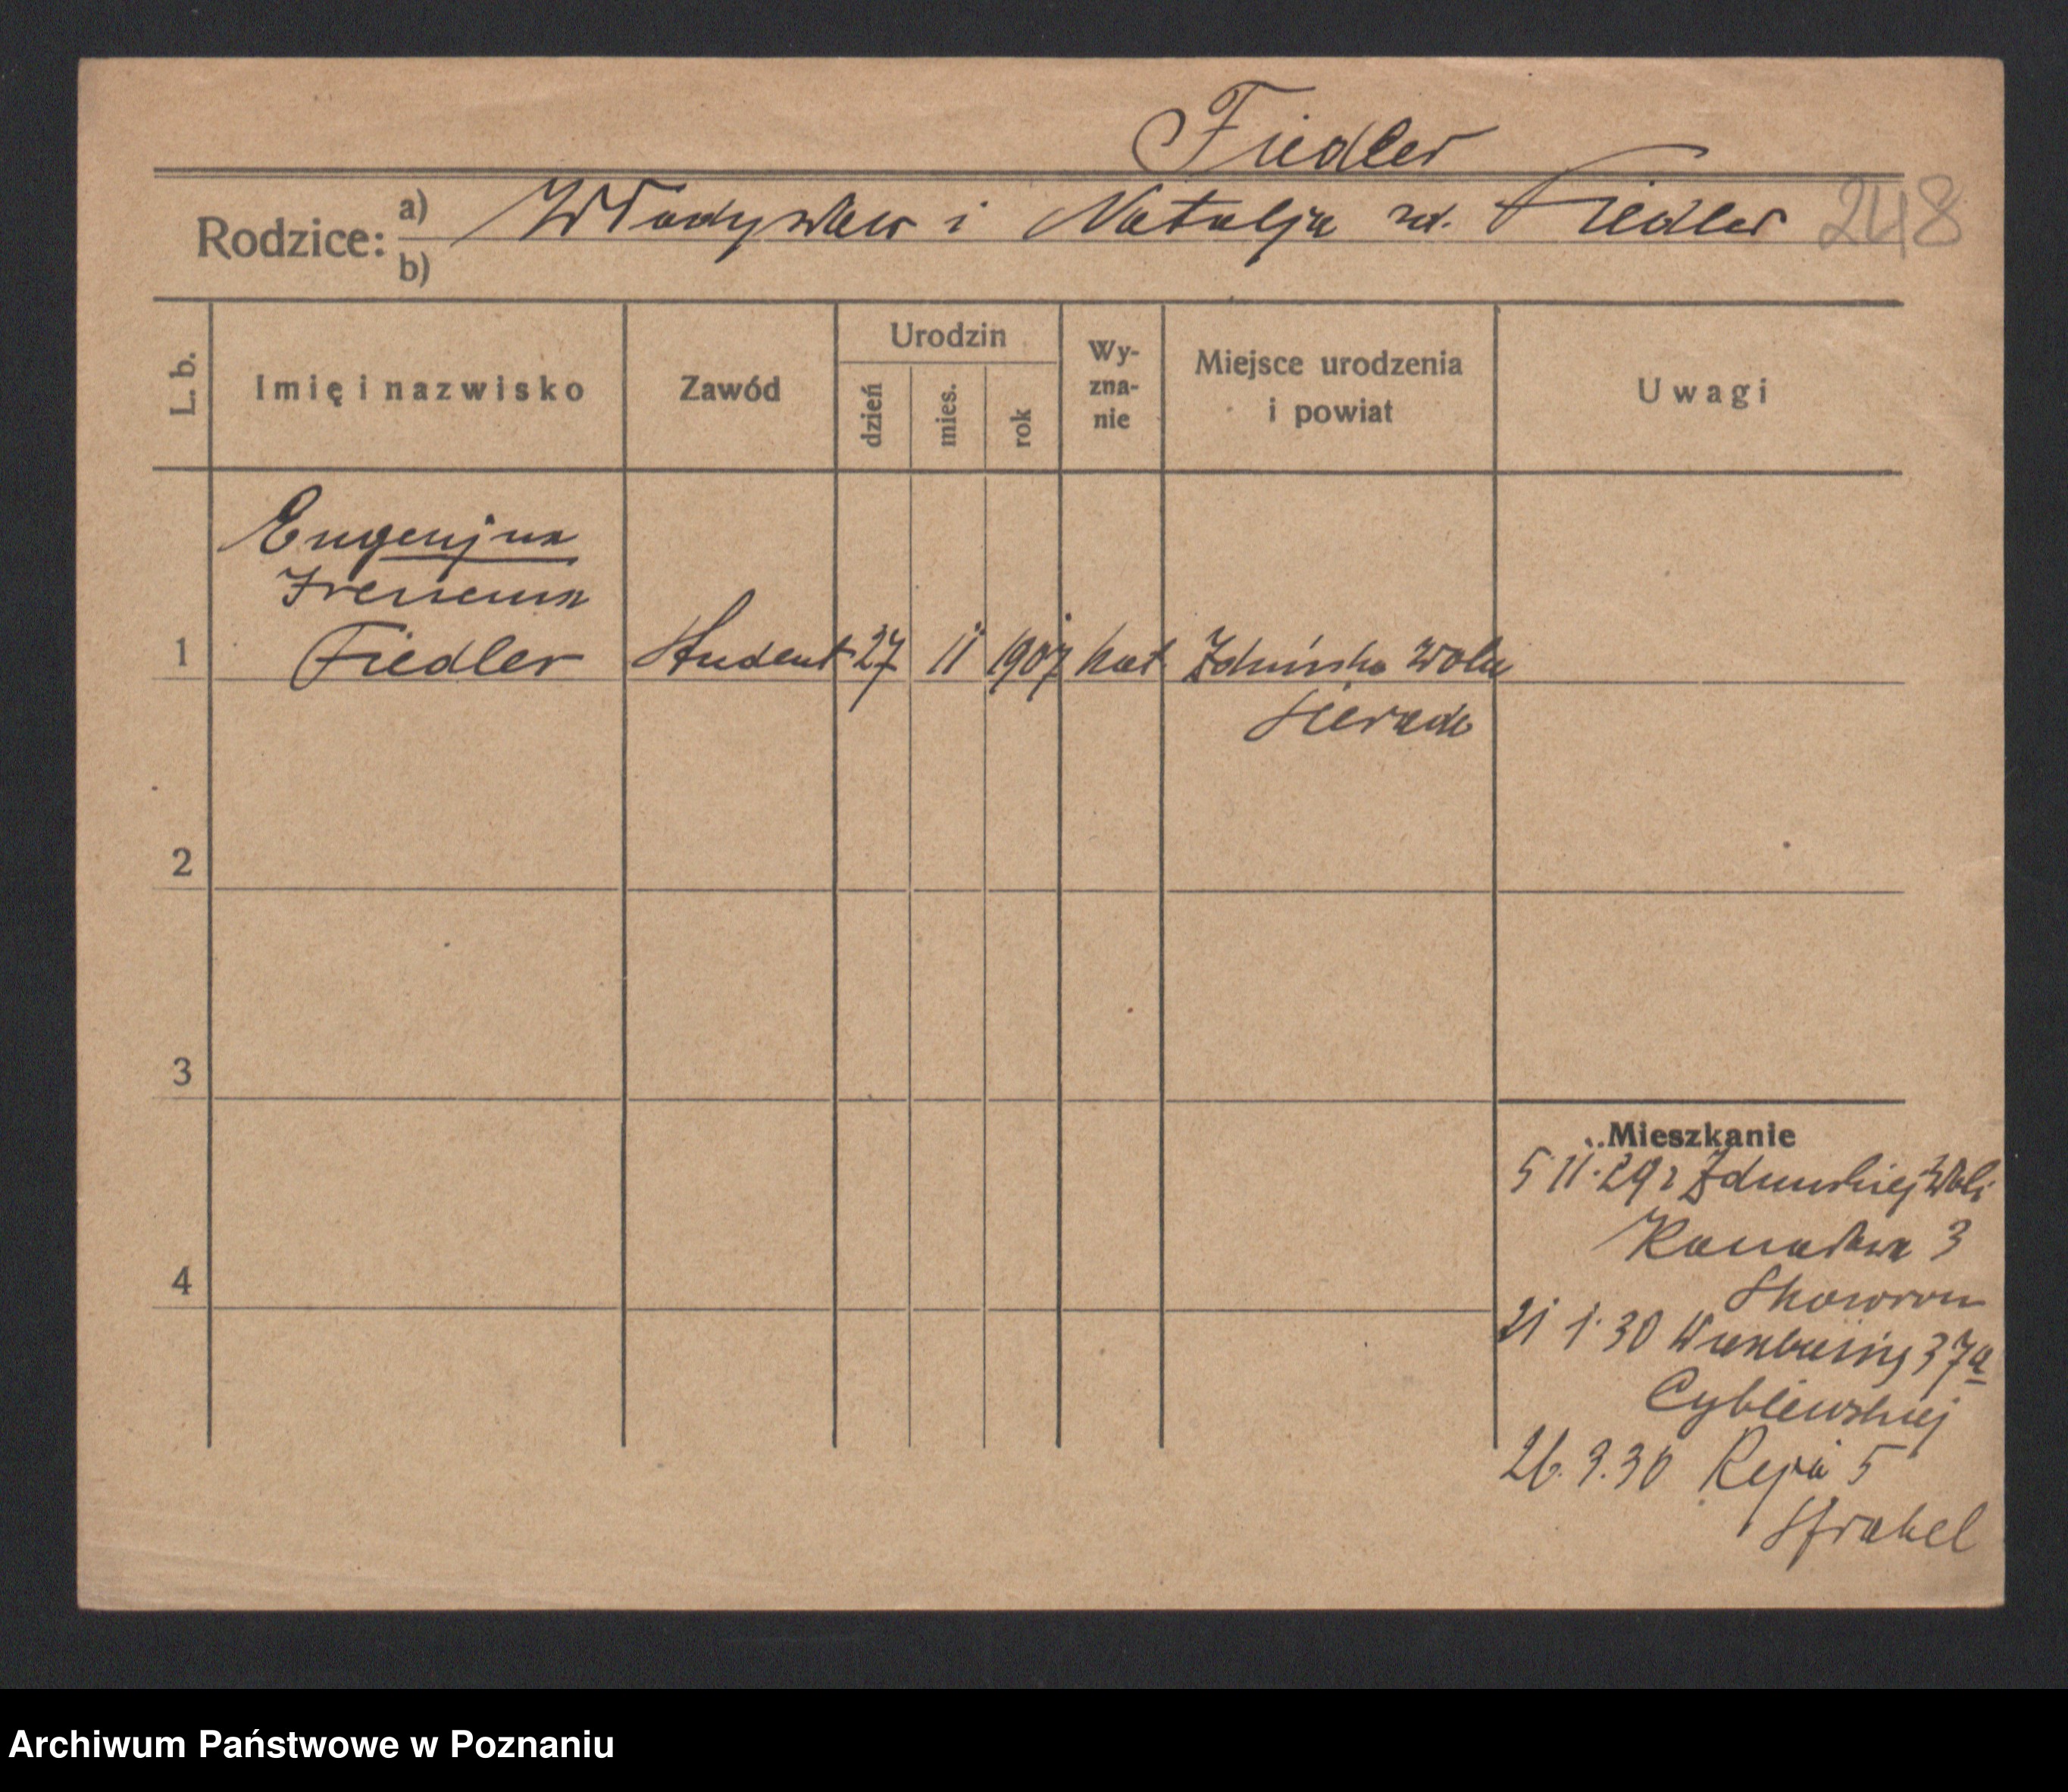 Fiedler
Rodzice: a) Władysław i Natalja zd. Fiedler 248
b)
L. b. Imię i nazwisko Zawód Urodzin dzień mies. rok Wy-zna-nie Miejsce urodzenia i powiat Uwagi
Eugenjusz
Ireneusz
1 Fiedler Student 27 11 1907 kat Zduńska Wola
Sieradz
2
3
4
Mieszkanie
5 11. 29 z Zduńskiej Woli
3
Skowron
21 1. 30 37a
Cyblewskiej
26. 3. 30 Reja 5
Archiwum Państwowe w Poznaniu